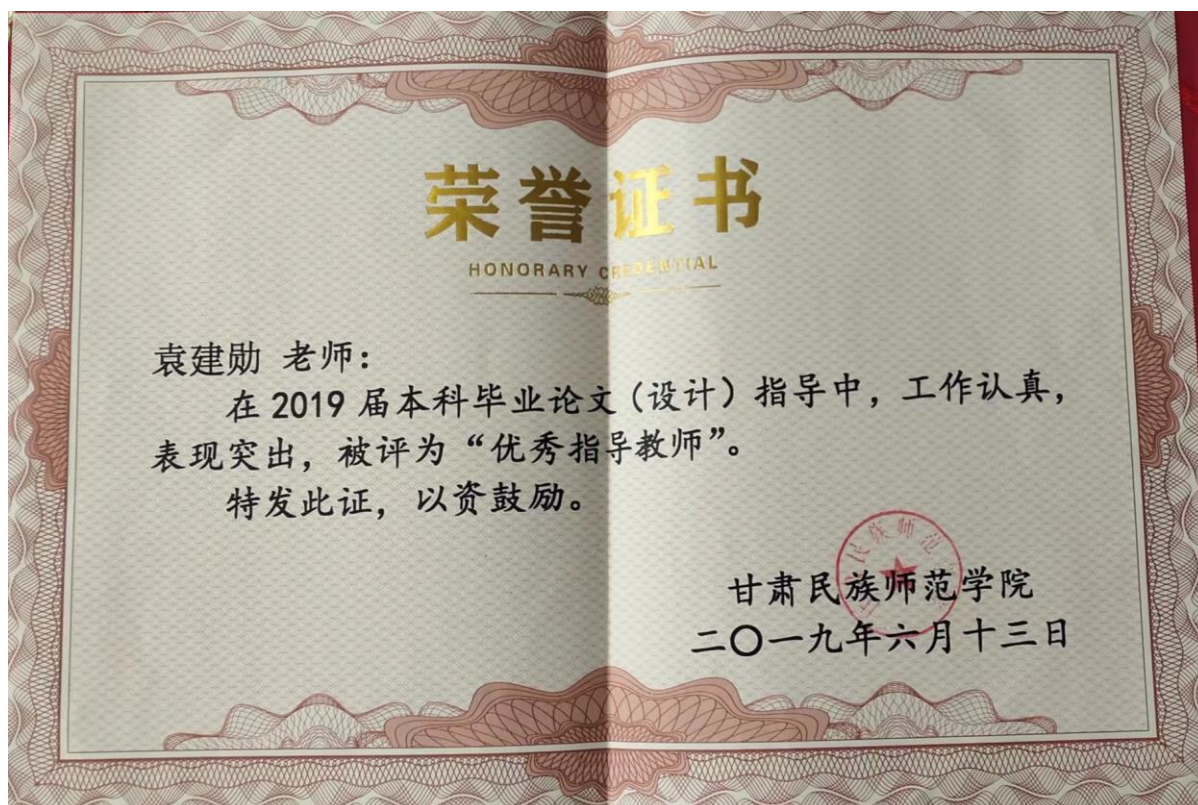 荣誉证书
HONORARY CREDENTIAL
袁建勋 老师：
在 2019 届本科毕业论文（设计）指导中，工作认真，
表现突出，被评为“优秀指导教师”。
特发此证，以资鼓励。
甘肃民族师范学院
二〇一九年六月十三日